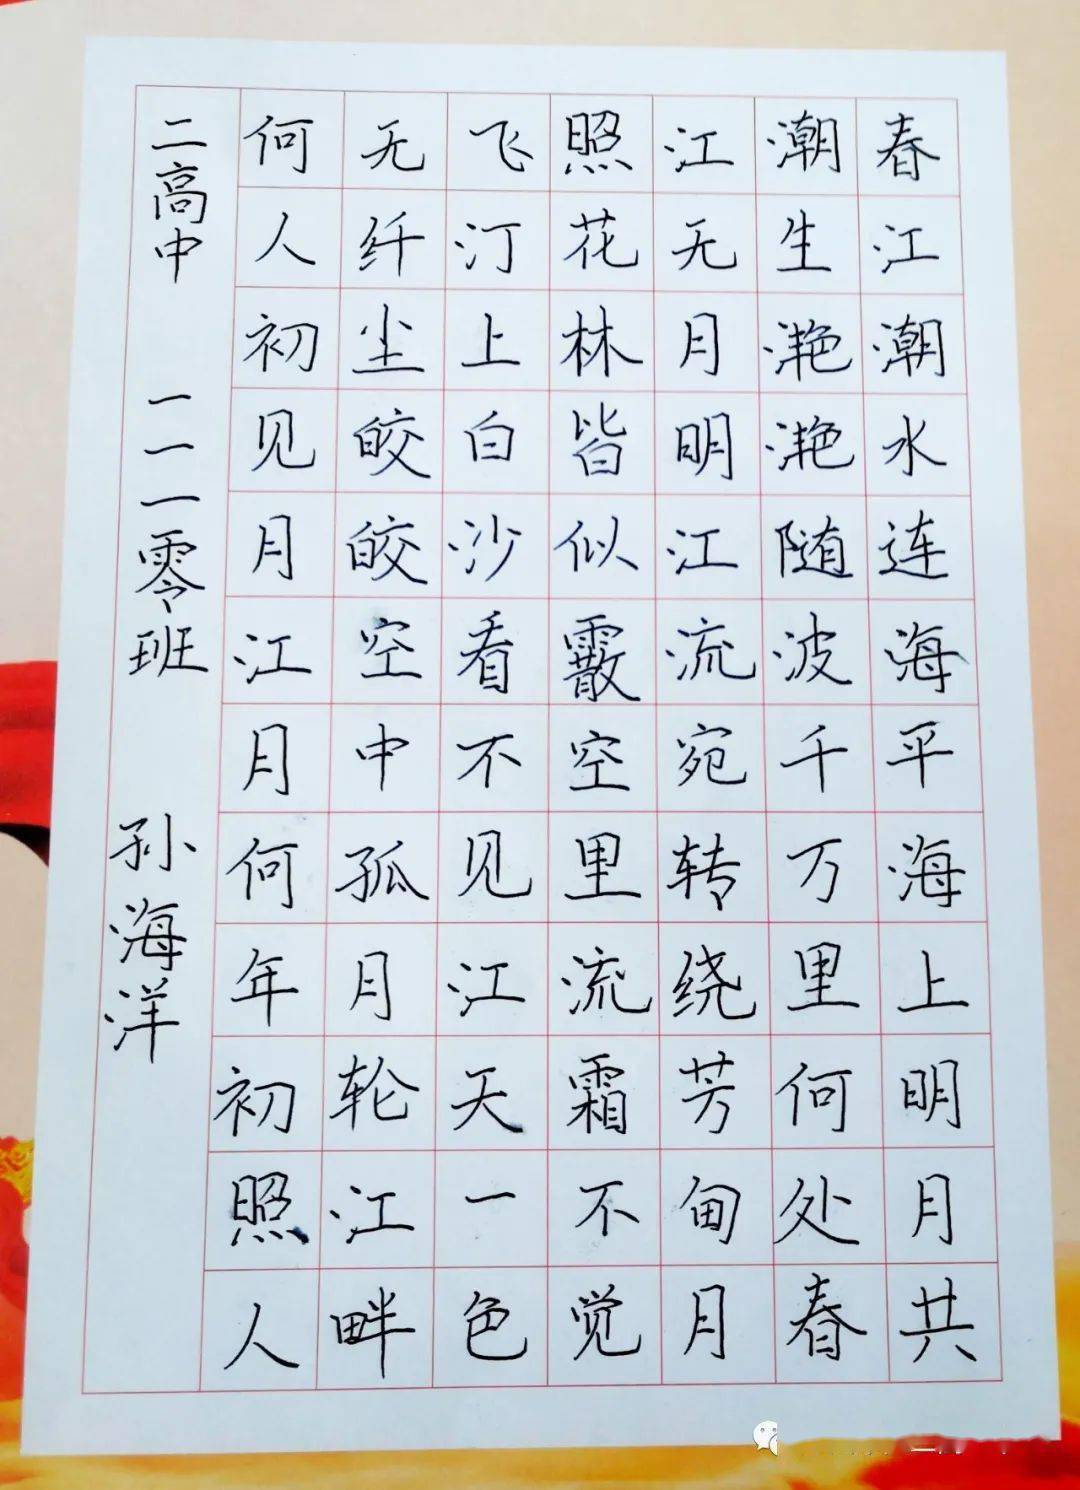 春江潮水连海平海上明月共
潮生滟滟随波千万里何处春
江无月明江流宛转绕芳甸月
照花林皆似霰空里流霜不觉
飞汀上白沙看不见江天一色
无纤尘皎皎空中孤月轮江畔
何人初见月江月何年初照人
二高中 一一一零班 孙海洋